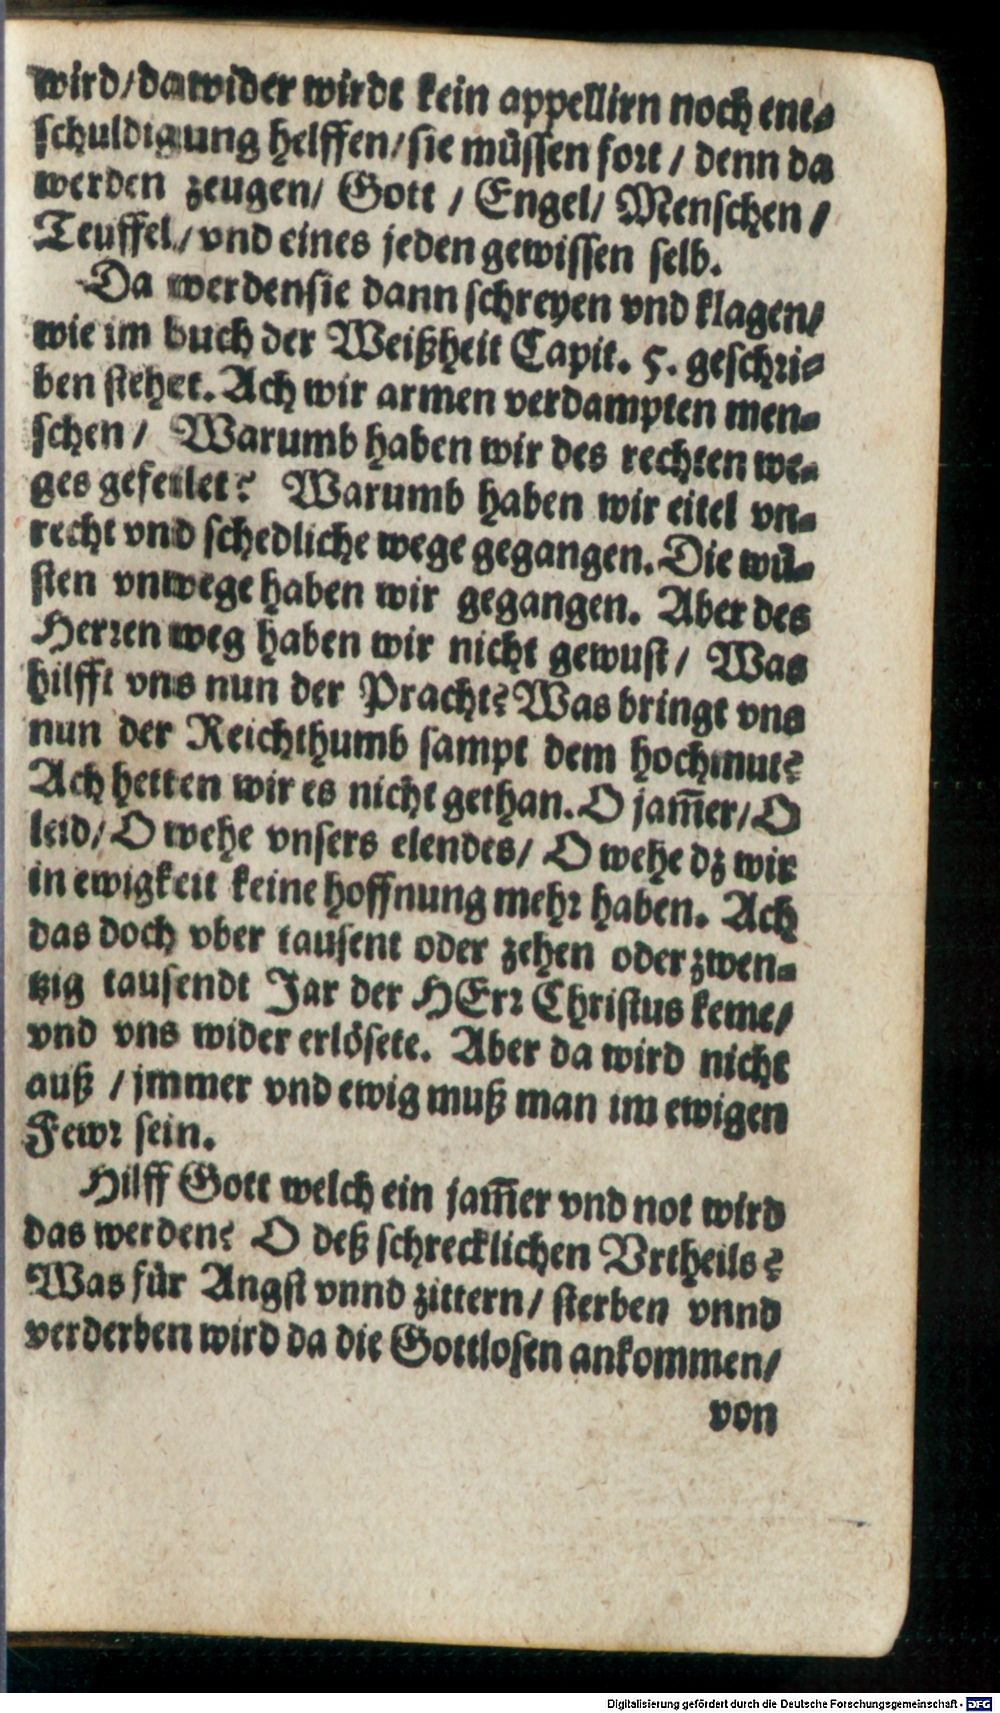 wird/ da wider wirdt kein appellirn noch ent-
schuldigung helffen/ sie müssen fort/ denn da
werden zeugen/ Gott/ Engel/ Menschen/
Teuffel/ vnd eines jeden gewissen selb.
Da werden sie dann schreyen vnd klagen/
wie im buch der Weißheit Capit. 5. geschri-
ben stehet. Ach wir armen verdampten men-
schen/ Warumb haben wir des rechten we-
ges gefeilet? Warumb haben wir eitel vn-
recht vnd schedliche wege gegangen. Die wü-
sten vnwege haben wir gegangen. Aber des
Herren weg haben wir nicht gewust/ Was
hilfft vns nun der Pracht? Was bringt vns
nun der Reichthumb sampt dem hochmut?
Ach hetten wir es nicht gethan. O jam̄er/ O
leid/ O wehe vnsers elendes/ O wehe dz wir
in ewigkeit keine hoffnung mehr haben. Ach
das doch vber tausent oder zehen oder zwen-
tzig tausendt Jar der HErr Christus keme/
vnd vns wider erlösete. Aber da wird nicht
auß/ jmmer vnd ewig muß man im ewigen
Fewr sein.
Hilff Gott welch ein jam̄er vnd not wird
das werden? O deß schrecklichen Vrtheils?
Was für Angst vnnd zittern/ sterben vnnd
verderben wird da die Gottlosen ankommen/
von
Digitalisierung gefördert durch die Deutsche Forschungsgemeinschaft - DFG